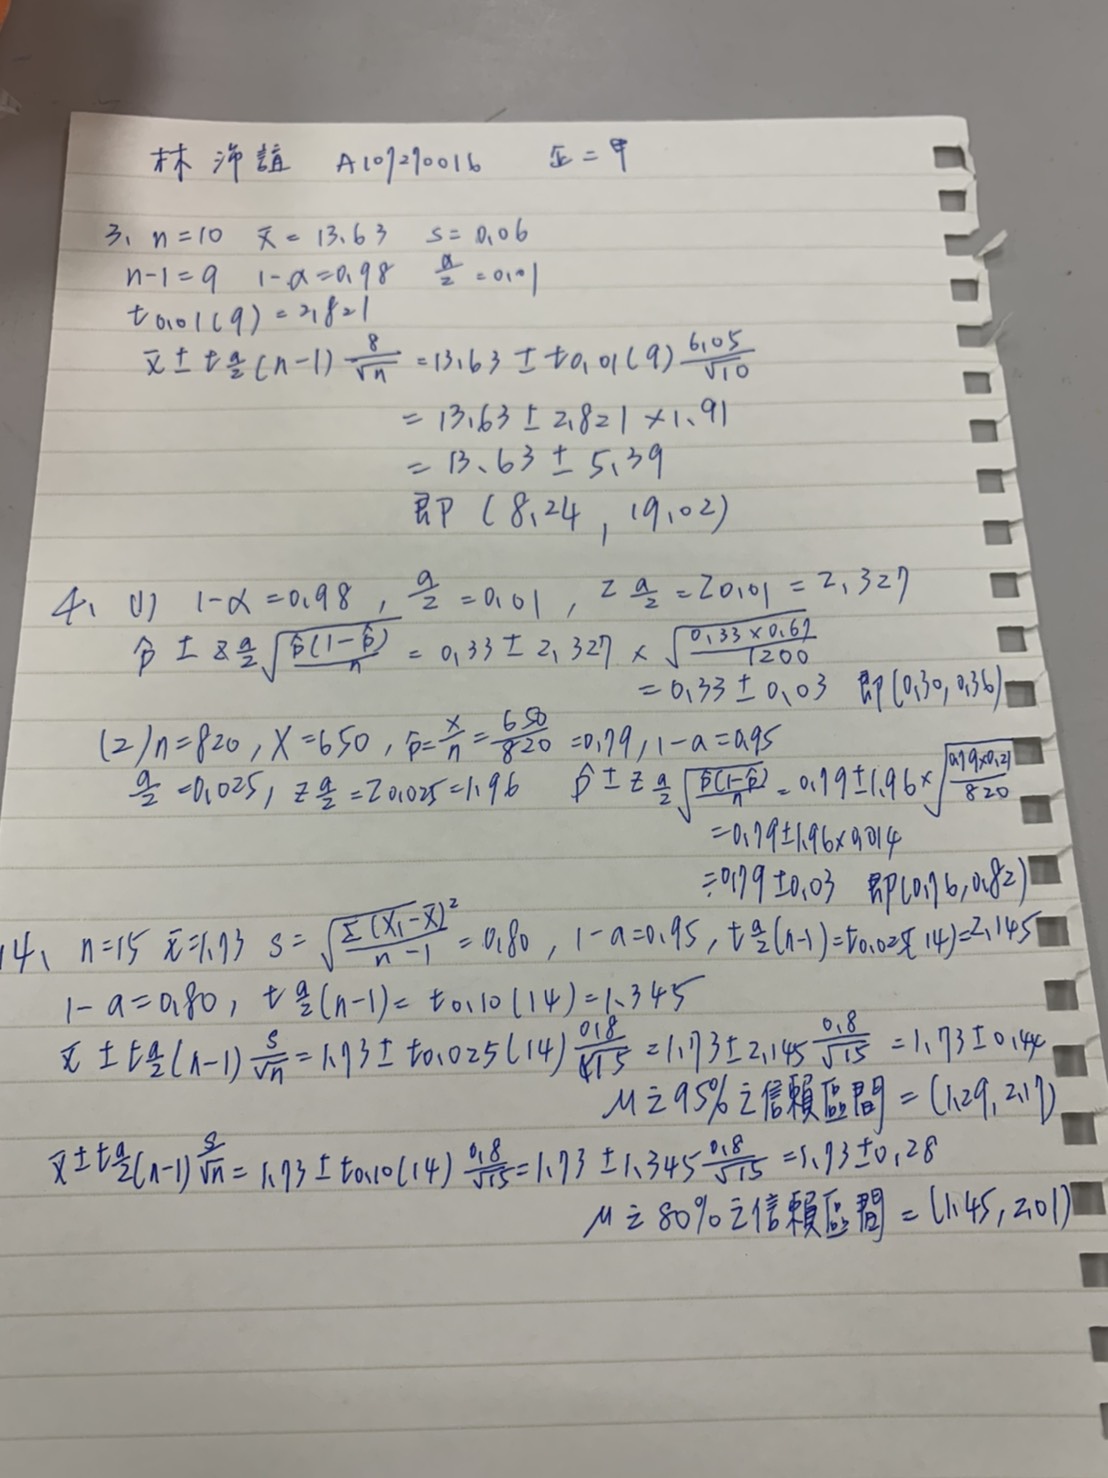 林 沛誼 A107270016 五=甲
3. n=10 x̄=13.63 s=0.06
n-1=9 1-α=0.98 α/2=0.01
t0.01(9)=2.821
x̄ ± t α/2 (n-1) 8/√n = 13.63 ± t0.01(9) 6.05/√10
= 13.63 ± 2.821 × 1.91
= 13.63 ± 5.39
即 (8.24, 19.02)
4. (1) 1-α=0.98, α/2=0.01, z α/2 = z0.01 = 2.327
p̂ ± z α/2 √(p̂(1-p̂)/n) = 0.33 ± 2.327 × √(0.33×0.67/1200)
= 0.33 ± 0.03 即(0.30, 0.36)
(2) n=820, X=650, p̂=x/n=650/820=0.79, 1-α=0.95
α/2=0.025, z α/2 = z0.025=1.96 p̂ ± z α/2 √(p̂(1-p̂)/n) = 0.79±1.96×√(0.79×0.21/820)
=0.79±1.96×0.014
=0.79±0.03 即(0.76, 0.82)
14. n=15 x̄=1.73 s=√(Σ(X₁-x̄)²/n-1)=0.80, 1-α=0.95, t α/2 (n-1)=t0.025(14)=2.145
1-α=0.80, t α/2 (n-1)= t0.10(14)=1.345
x̄ ± t α/2 (n-1) s/√n = 1.73 ± t0.025(14) 0.8/√15 = 1.73±2.145 0.8/√15 = 1.73±0.44
μ之95%之信賴區間=(1.29, 2.17)
x̄ ± t α/2 (n-1) s/√n = 1.73 ± t0.10(14) 0.8/√15 = 1.73 ± 1.345 0.8/√15 = 1.73±0.28
μ之80%之信賴區間=(1.45, 2.01)